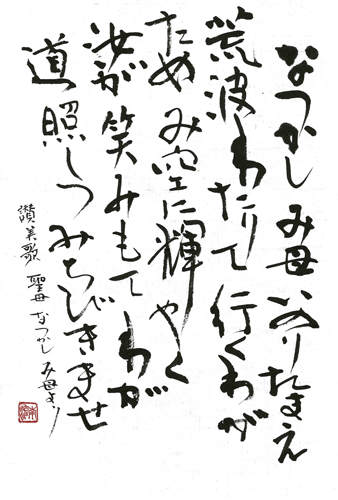 なつかし み母 いのりたまえ
荒波わたりて 行くわが
ため み空に輝やく
汝が 笑みもて わが
道 照しつ みちびきませ
讃美歌 聖母 なつかし み母より